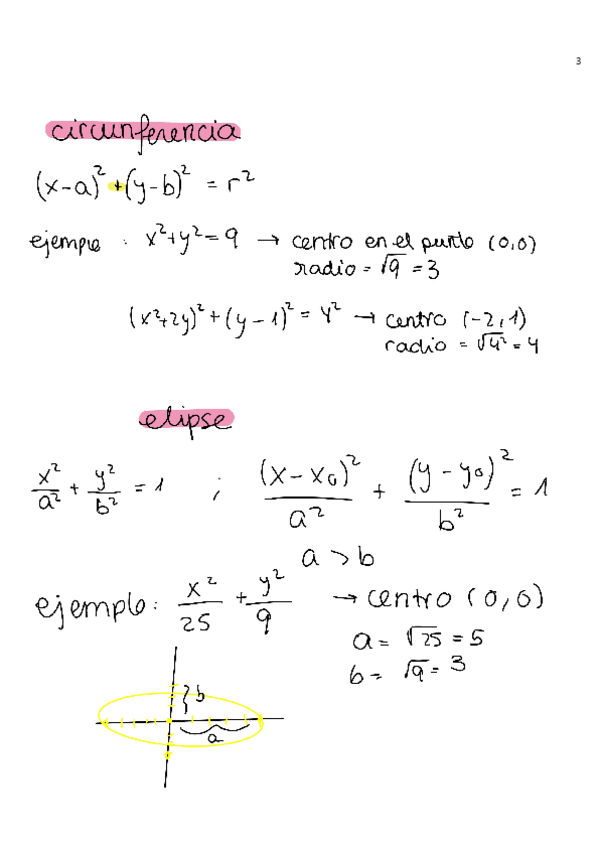 3
circunferencia
(x-a)² + (y-b)² = r²
ejemplo : x²+y²=9 → centro en el punto (0,0)
radio = √9 = 3
(x²+2y)² + (y-1)² = 4² → centro (-2,1)
radio = √4² = 4
elipse
x²/a² + y²/b² = 1 ; (x-x₀)²/a² + (y-y₀)²/b² = 1
a > b
ejemplo: x²/25 + y²/9 → centro (0,0)
a = √25 = 5
b = √9 = 3
b
a